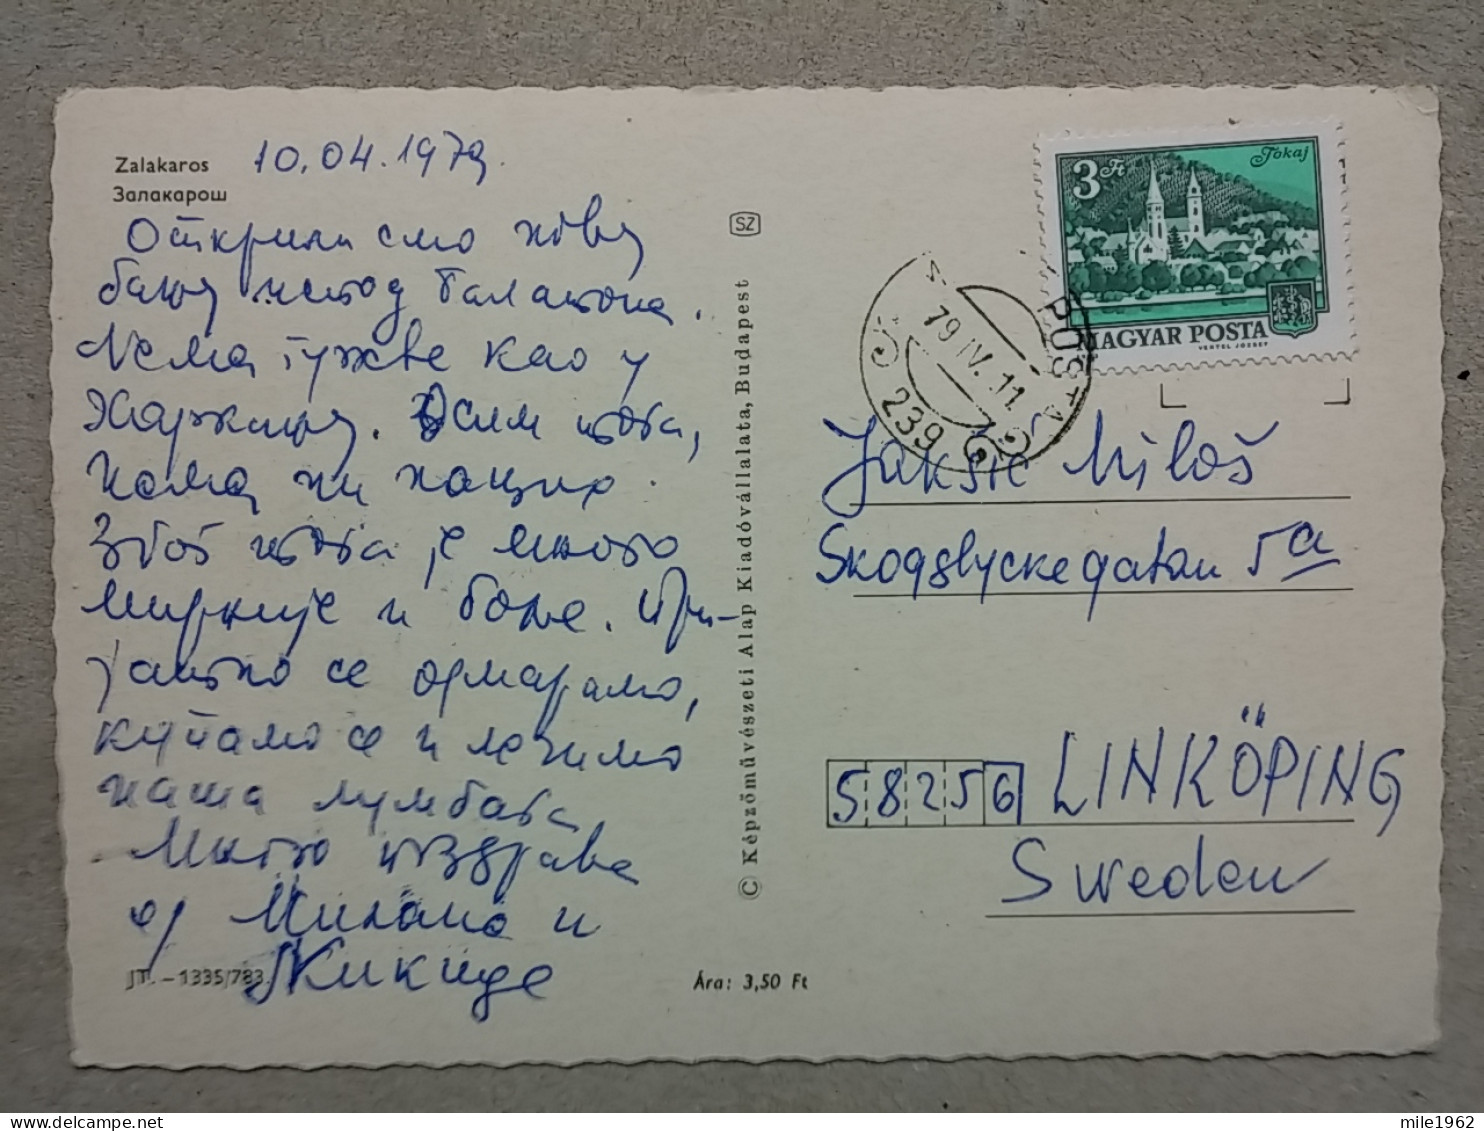 Zalakaros
Залакарош
10.04.1979.
Открили смо нову
бању испод Балатона.
Нема гужве као у
Харкању. Осим тога,
нема ни нација.
Због тога је много
мирније и боље. При-
јатно се одмарамо,
купамо се и лечимо
наша лумбага.
Много поздрава
од Милана и
JT. - 1335/783.
Ára: 3,50 Ft
SZ
© Képzőművészeti Alap Kiadóvállalata, Budapest
3 Ft
Tokaj
MAGYAR POSTA
VERTEL JÓZSEF
POSTA
79 IV. 11.
239
Jakšić Miloš
Skogslyckegatan 5a
58256 LINKÖPING
Sweden
mile1962